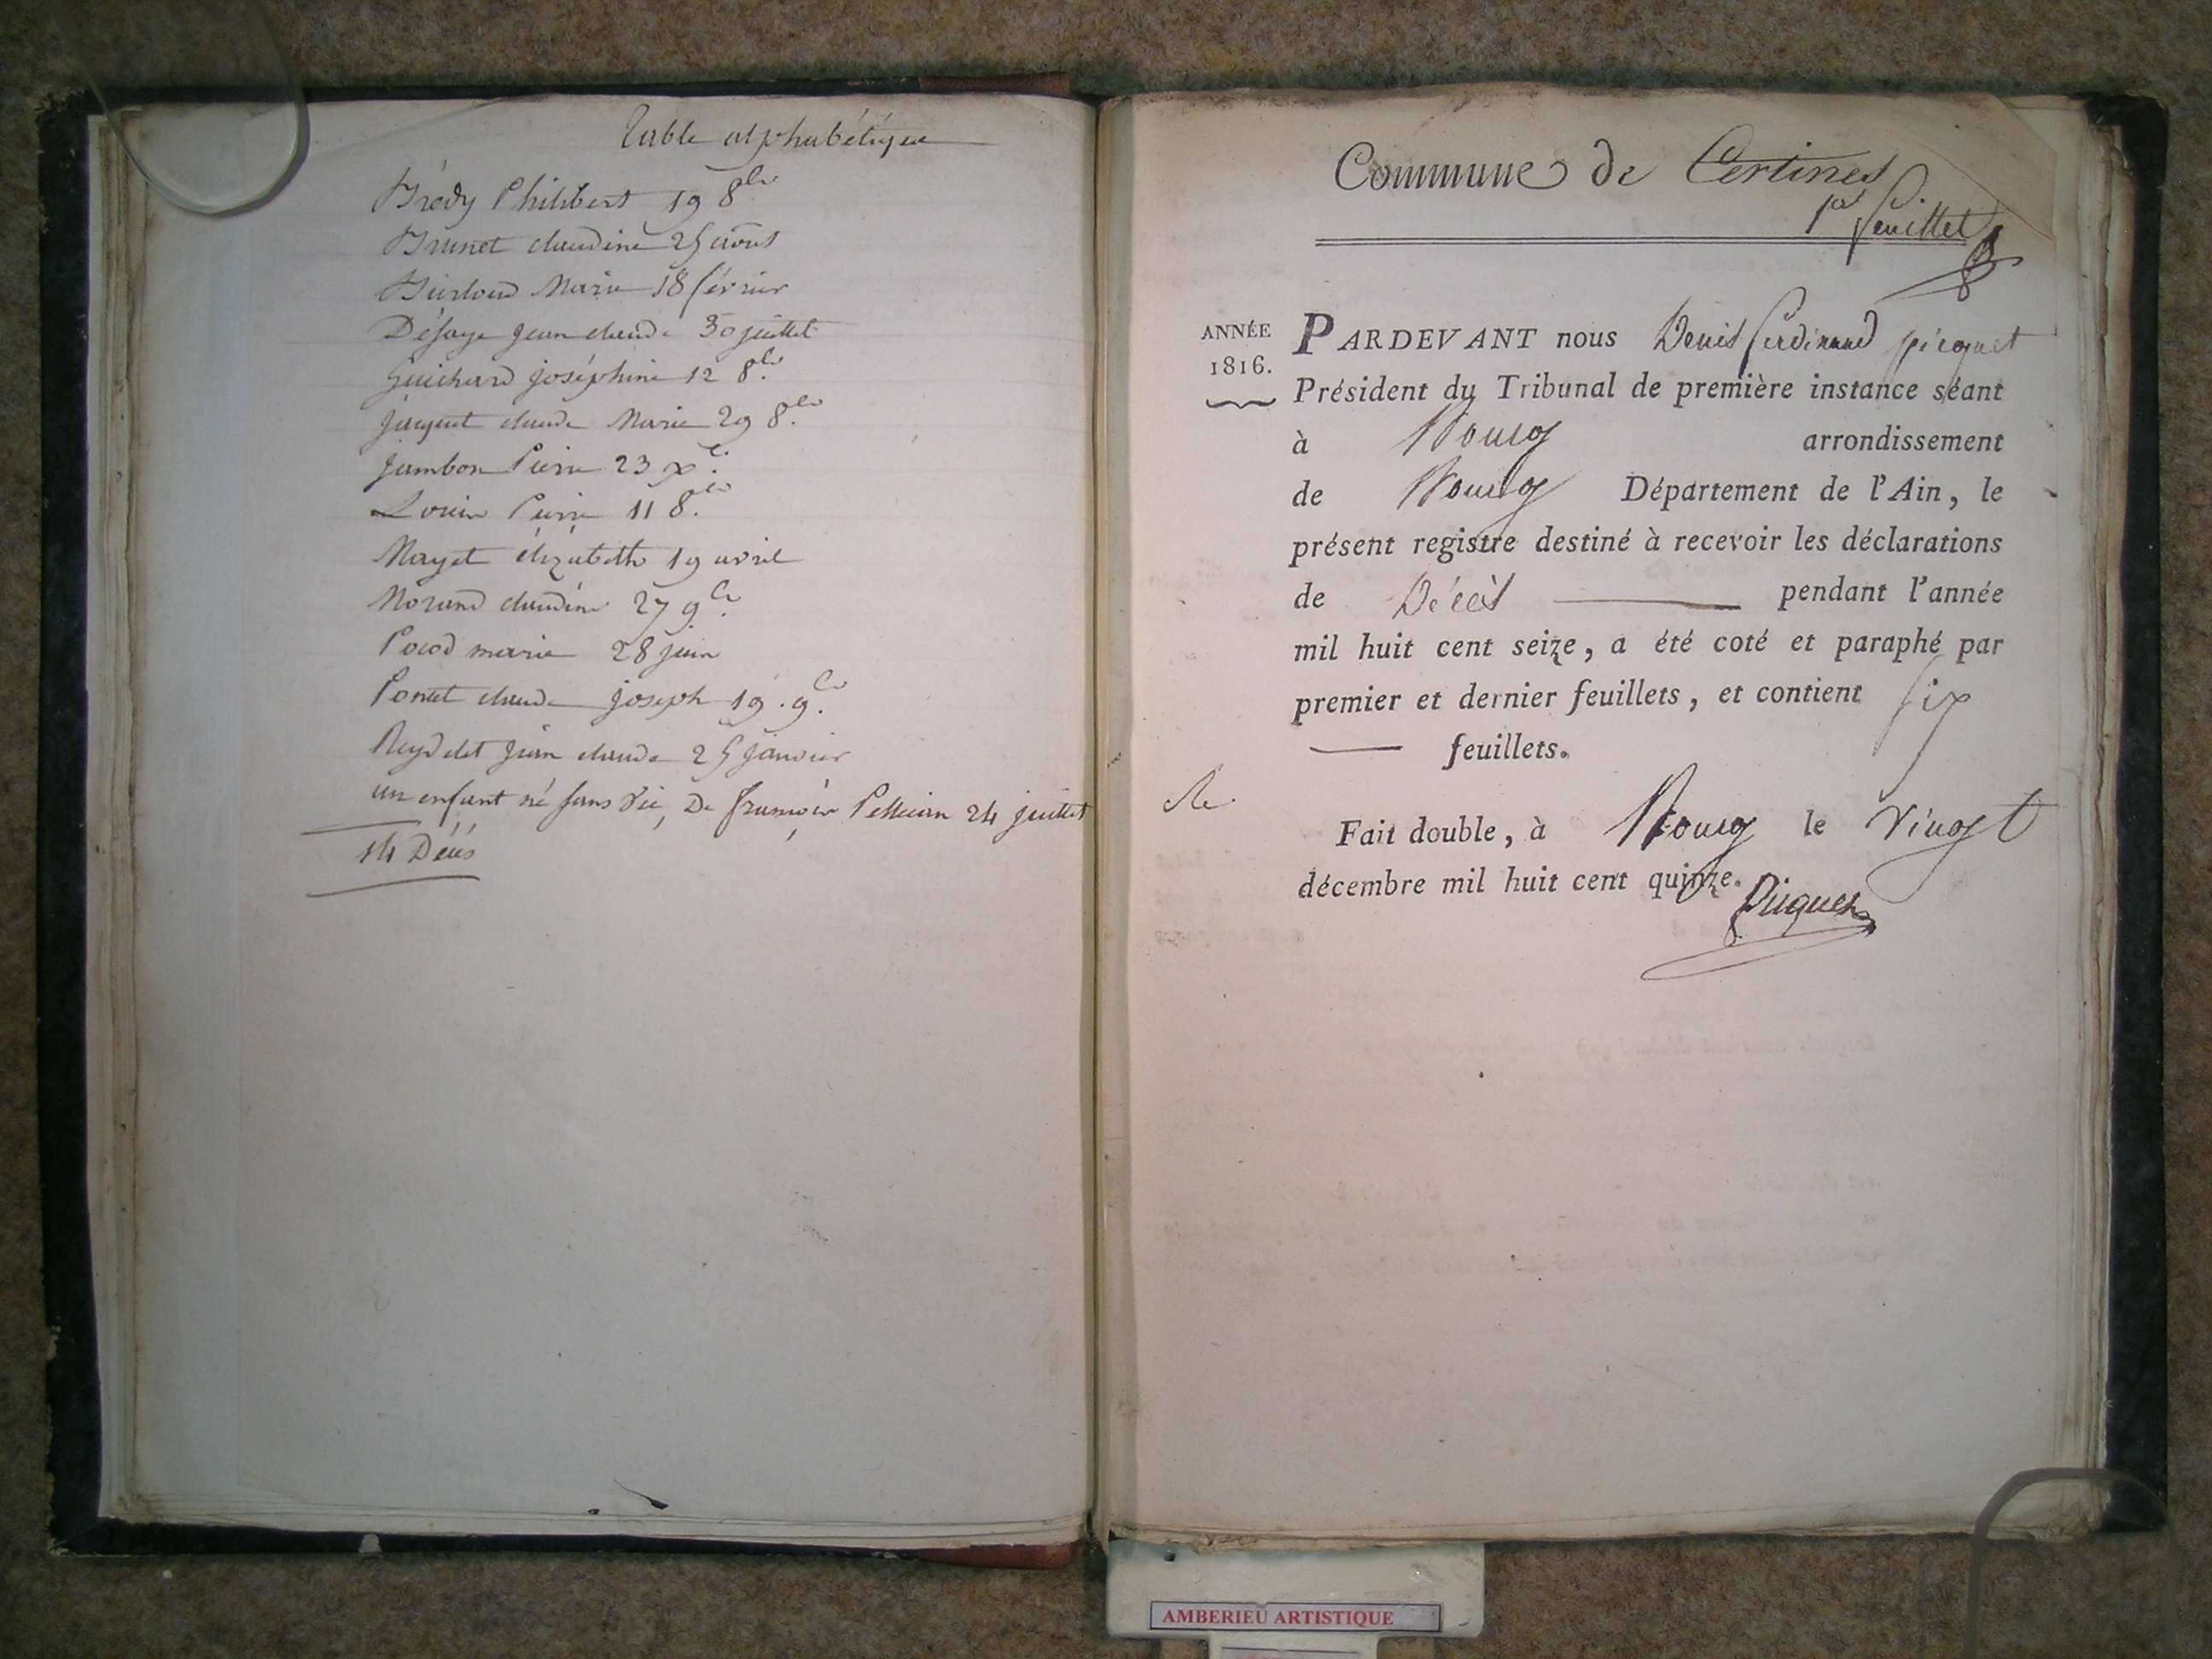 Table alphabétique
Brédy Philibert 19 8bre
Brunet claudine 25 aout
Burloud Marie 18 février
Défaye jean claude 30 juillet
Guichard joséphine 12 8bre
jacquet claude Marie 29 8bre
jambon Pierre 23 xe
Pierre 11 8bre
Mayet élizabeth 19 avril
Morand claudine 27 9bre
Pocod marie 28 juin
Poncet claude joseph 19. 9bre
Reydelet jean claude 25 janvier
un enfant né sans vie, De françois 24 juillet
14 Décès
Commune de Certines
1er feuillet
ANNÉE
1816.
PARDEVANT nous Denis ferdinand picquet
Président du Tribunal de première instance séant
à Bourg arrondissement
de Bourg Département de l'Ain, le
présent registre destiné à recevoir les déclarations
de Décès pendant l'année
mil huit cent seize, a été coté et paraphé par
premier et dernier feuillets, et contient six
feuillets.
Fait double, à Bourg le vingt
décembre mil huit cent quinze.
Picquet
AMBERIEU ARTISTIQUE